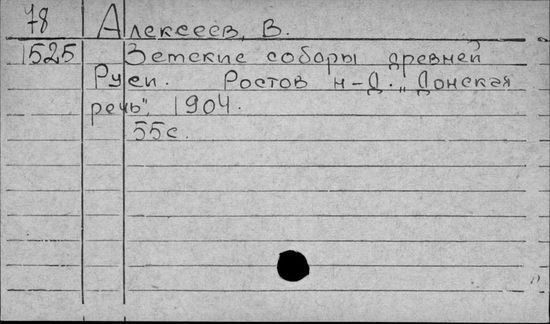 78 Алексеев, В.
1525 Земские соборы древней
Руси. Ростов н-Д. „Донская
речь", 1904.
55с.